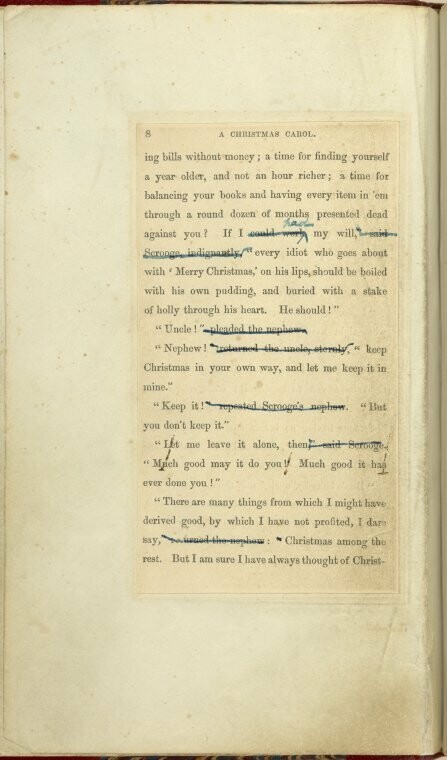 8 A CHRISTMAS CAROL.
ing bills without money ; a time for finding yourself
a year older, and not an hour richer ; a time for
balancing your books and having every item in 'em
through a round dozen of months presented dead
had
against you ? If I could work my will," said
Scrooge, indignantly, "every idiot who goes about
with ' Merry Christmas,' on his lips, should be boiled
with his own pudding, and buried with a stake
of holly through his heart. He should ! "
" Uncle ! " pleaded the nephew.
" Nephew ! " returned the uncle, sternly, " keep
Christmas in your own way, and let me keep it in
mine."
" Keep it ! " repeated Scrooge's nephew. " But
you don't keep it."
" Let me leave it alone, then," said Scrooge.
" Much good may it do you ! Much good it has
ever done you ! "
" There are many things from which I might have
derived good, by which I have not profited, I dare
say, " returned the nephew : " Christmas among the
rest. But I am sure I have always thought of Christ-